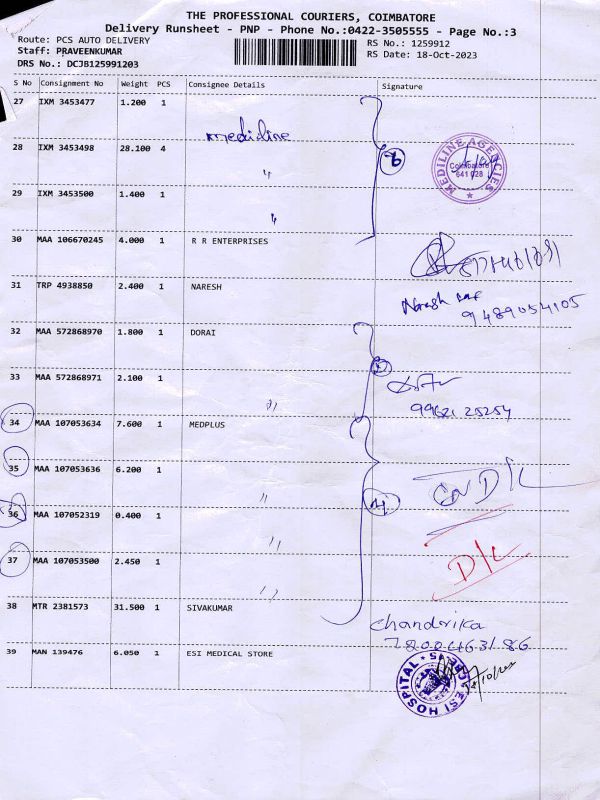 THE PROFESSIONAL COURIERS, COIMBATORE
Delivery Runsheet - PNP - Phone No.:0422-3505555 - Page No.:3
Route: PCS AUTO DELIVERY
Staff: PRAVEENKUMAR
DRS No.: DCJB125991203
RS No.: 1259912
RS Date: 18-Oct-2023
S No Consignment No Weight PCS Consignee Details Signature
27 IXM 3453477 1.200 1 Mediline
28 IXM 3453498 28.100 4 "
MEDILINE AGENCIES
Coimbatore
641 028
29 IXM 3453500 1.400 1 "
30 MAA 106670245 4.000 1 R R ENTERPRISES
31 TRP 4938850 2.400 1 NARESH
Naresh
9489054105
32 MAA 572868970 1.800 1 DORAI
33 MAA 572868971 2.100 1 "
99621 25254
34 MAA 107053634 7.600 1 MEDPLUS
35 MAA 107053636 6.200 1 "
36 MAA 107052319 0.400 1 "
D/C
37 MAA 107053500 2.450 1 "
38 MTR 2381573 31.500 1 SIVAKUMAR
Chandrika
7800463186
39 MAN 139476 6.050 1 ESI MEDICAL STORE
ESI HOSPITAL